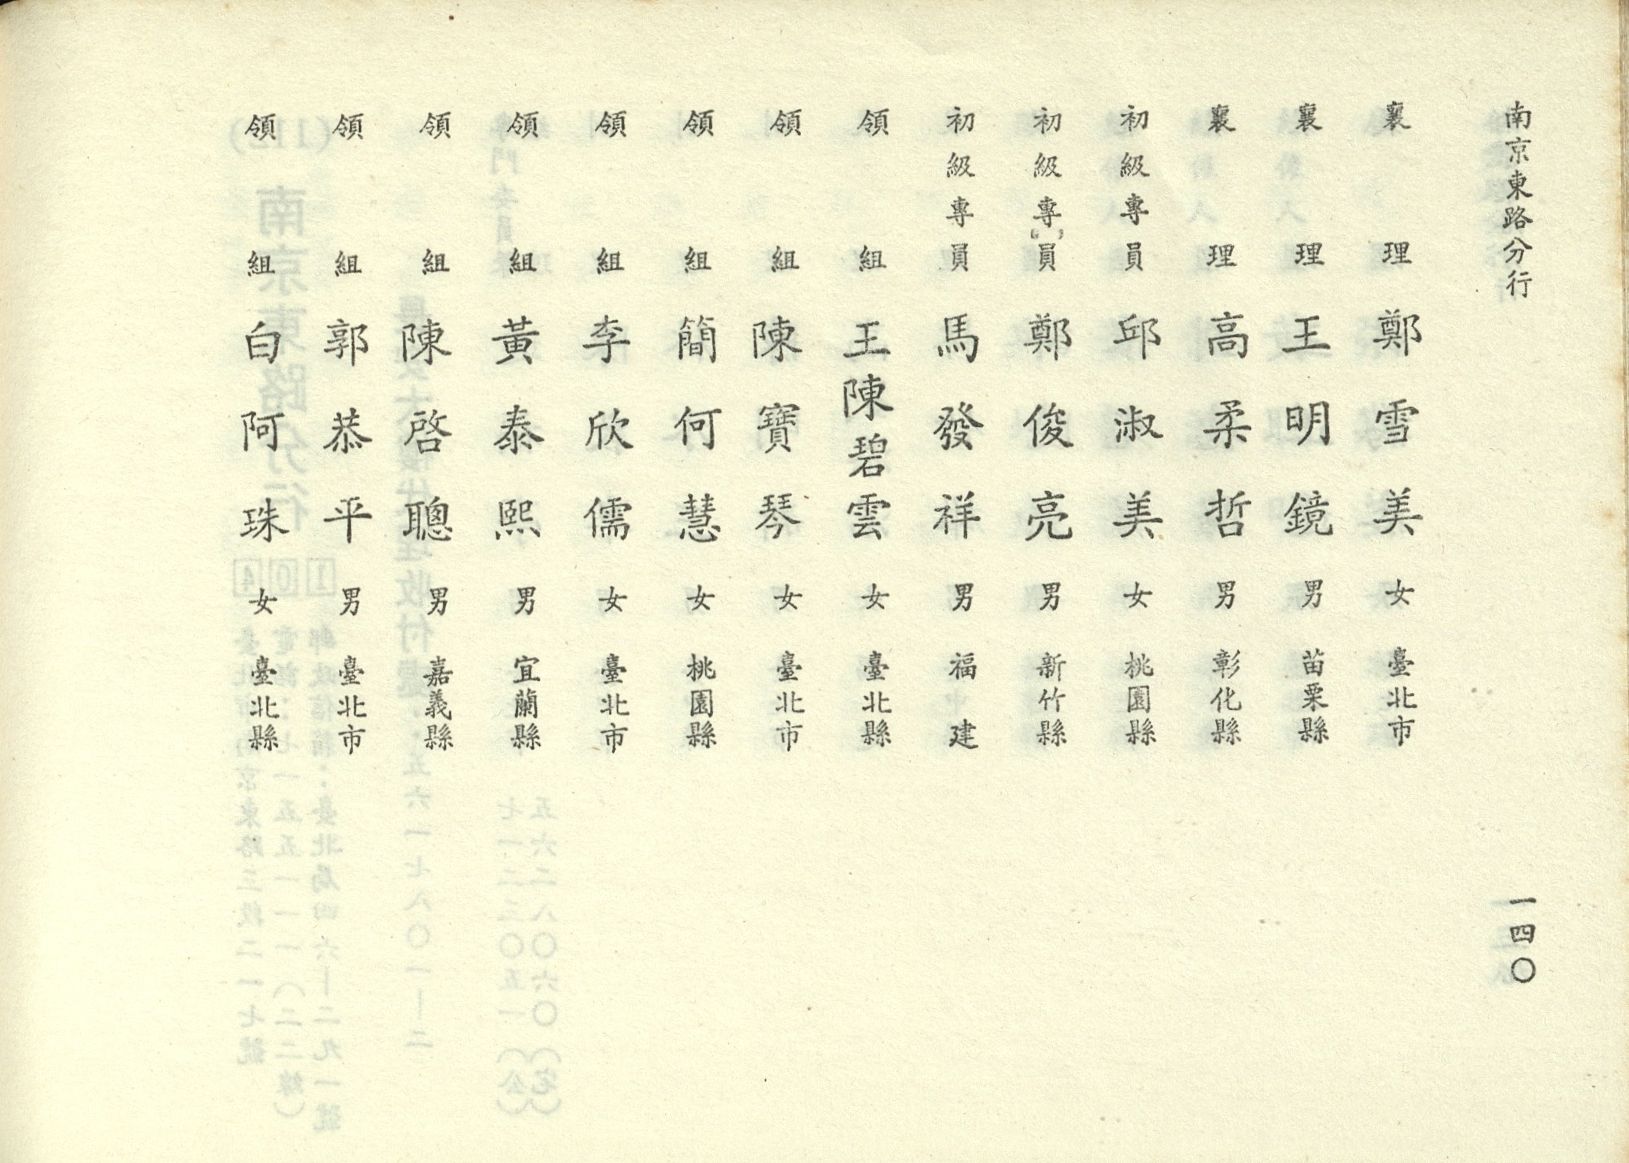 南京東路分行
襄理 鄭雪美 女 臺北市
襄理 王明鏡 男 苗栗縣
襄理 高柔哲 男 彰化縣
初級專員 邱淑美 女 桃園縣
初級專員 鄭俊亮 男 新竹縣
初級專員 馬發祥 男 福建
領組 王陳碧雲 女 臺北縣
領組 陳寶琴 女 臺北市
領組 簡何慧 女 桃園縣
領組 李欣儒 女 臺北市
領組 黃泰熙 男 宜蘭縣
領組 陳啓聰 男 嘉義縣
領組 郭恭平 男 臺北市
領組 白阿珠 女 臺北縣
一四〇